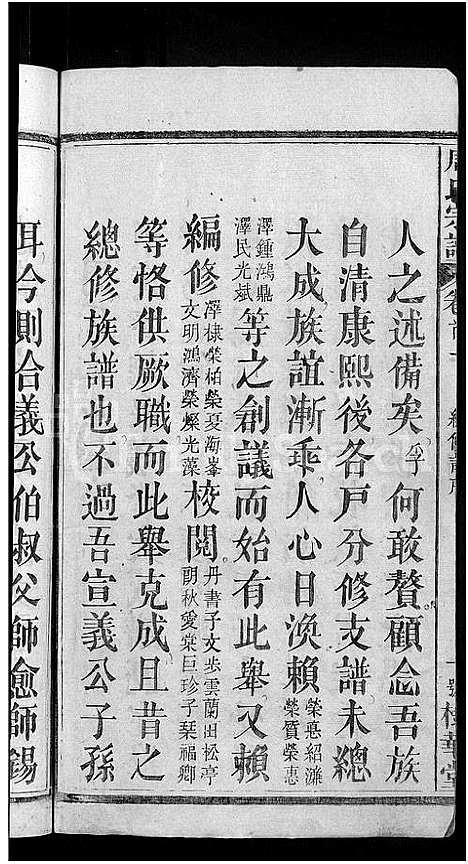 人之述備矣孚何敢贅顧念吾族
自清康熙後各戶分修支譜未總
大成族誼漸乖人心日渙賴榮恩紹濂榮質榮惠
澤鍾鴻鼎澤民光斌等之創議而始有此舉又賴
編修澤棣榮柏榮夏海峯文明鴻濟榮燦光藻校閱丹書子文步雲蘭田松亭朗秋愛棠巨珍子琹福卿
等恪供厥職而此舉克成且昔之
總修族譜也不過吾宣義公子孫
耳今則合義公伯叔父師愈師錫